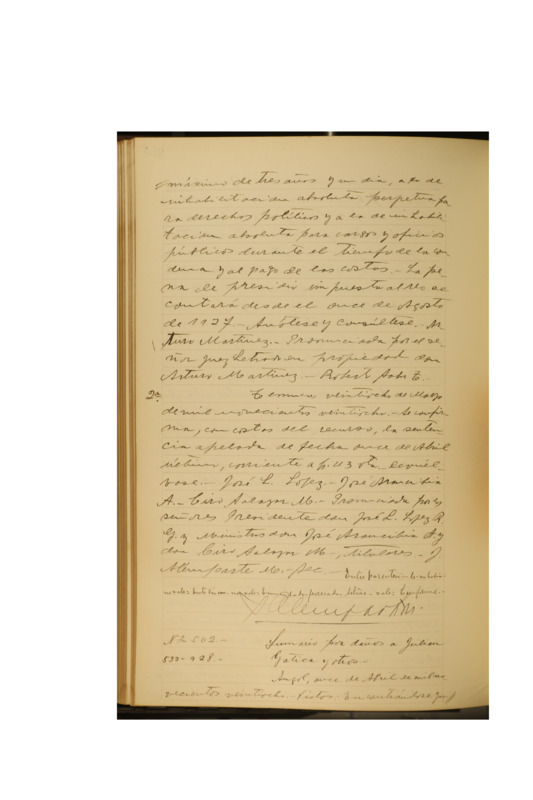 máximo de tres años y un dia, a la de
inhabilitacion absoluta perpetua pa
ra derechos políticos y a la de inhabili
tacion absoluta para cargos y oficios
públicos durante el tiempo de la con
dena y al pago de las costas.- La pe
na de presidio impuesta al reo se
contará desde el once de Agosto
de 1927.- Anótese y consúltese.- Ar
turo Martinez.- Pronunciada por el se
ñor Juez Letrado en propiedad don
Arturo Martinez.- Roberto E.
2a. Temuco veintiocho de Mayo
de mil novecientos veintiocho.- Se confir
ma, con costas del recurso, la senten
cia apelada de fecha once de Abril
último, corriente a fs. 113 vta. Devuél
vase.- José L. López.- José Arancibia
A.- Ciro Salazar M.- Pronunciada por los
señores Presidente don José L. López R.
G. y Ministros don José Arancibia A. y
don Ciro Salazar M., titulares.- J
Alemparte M.- Sec.-
No 502.- Sumario por daños a Julian
533-928.- Gatica y otros.-
Angol, once de Abril de mil no
vecientos veintiocho.- Vistos.- Encontrándose